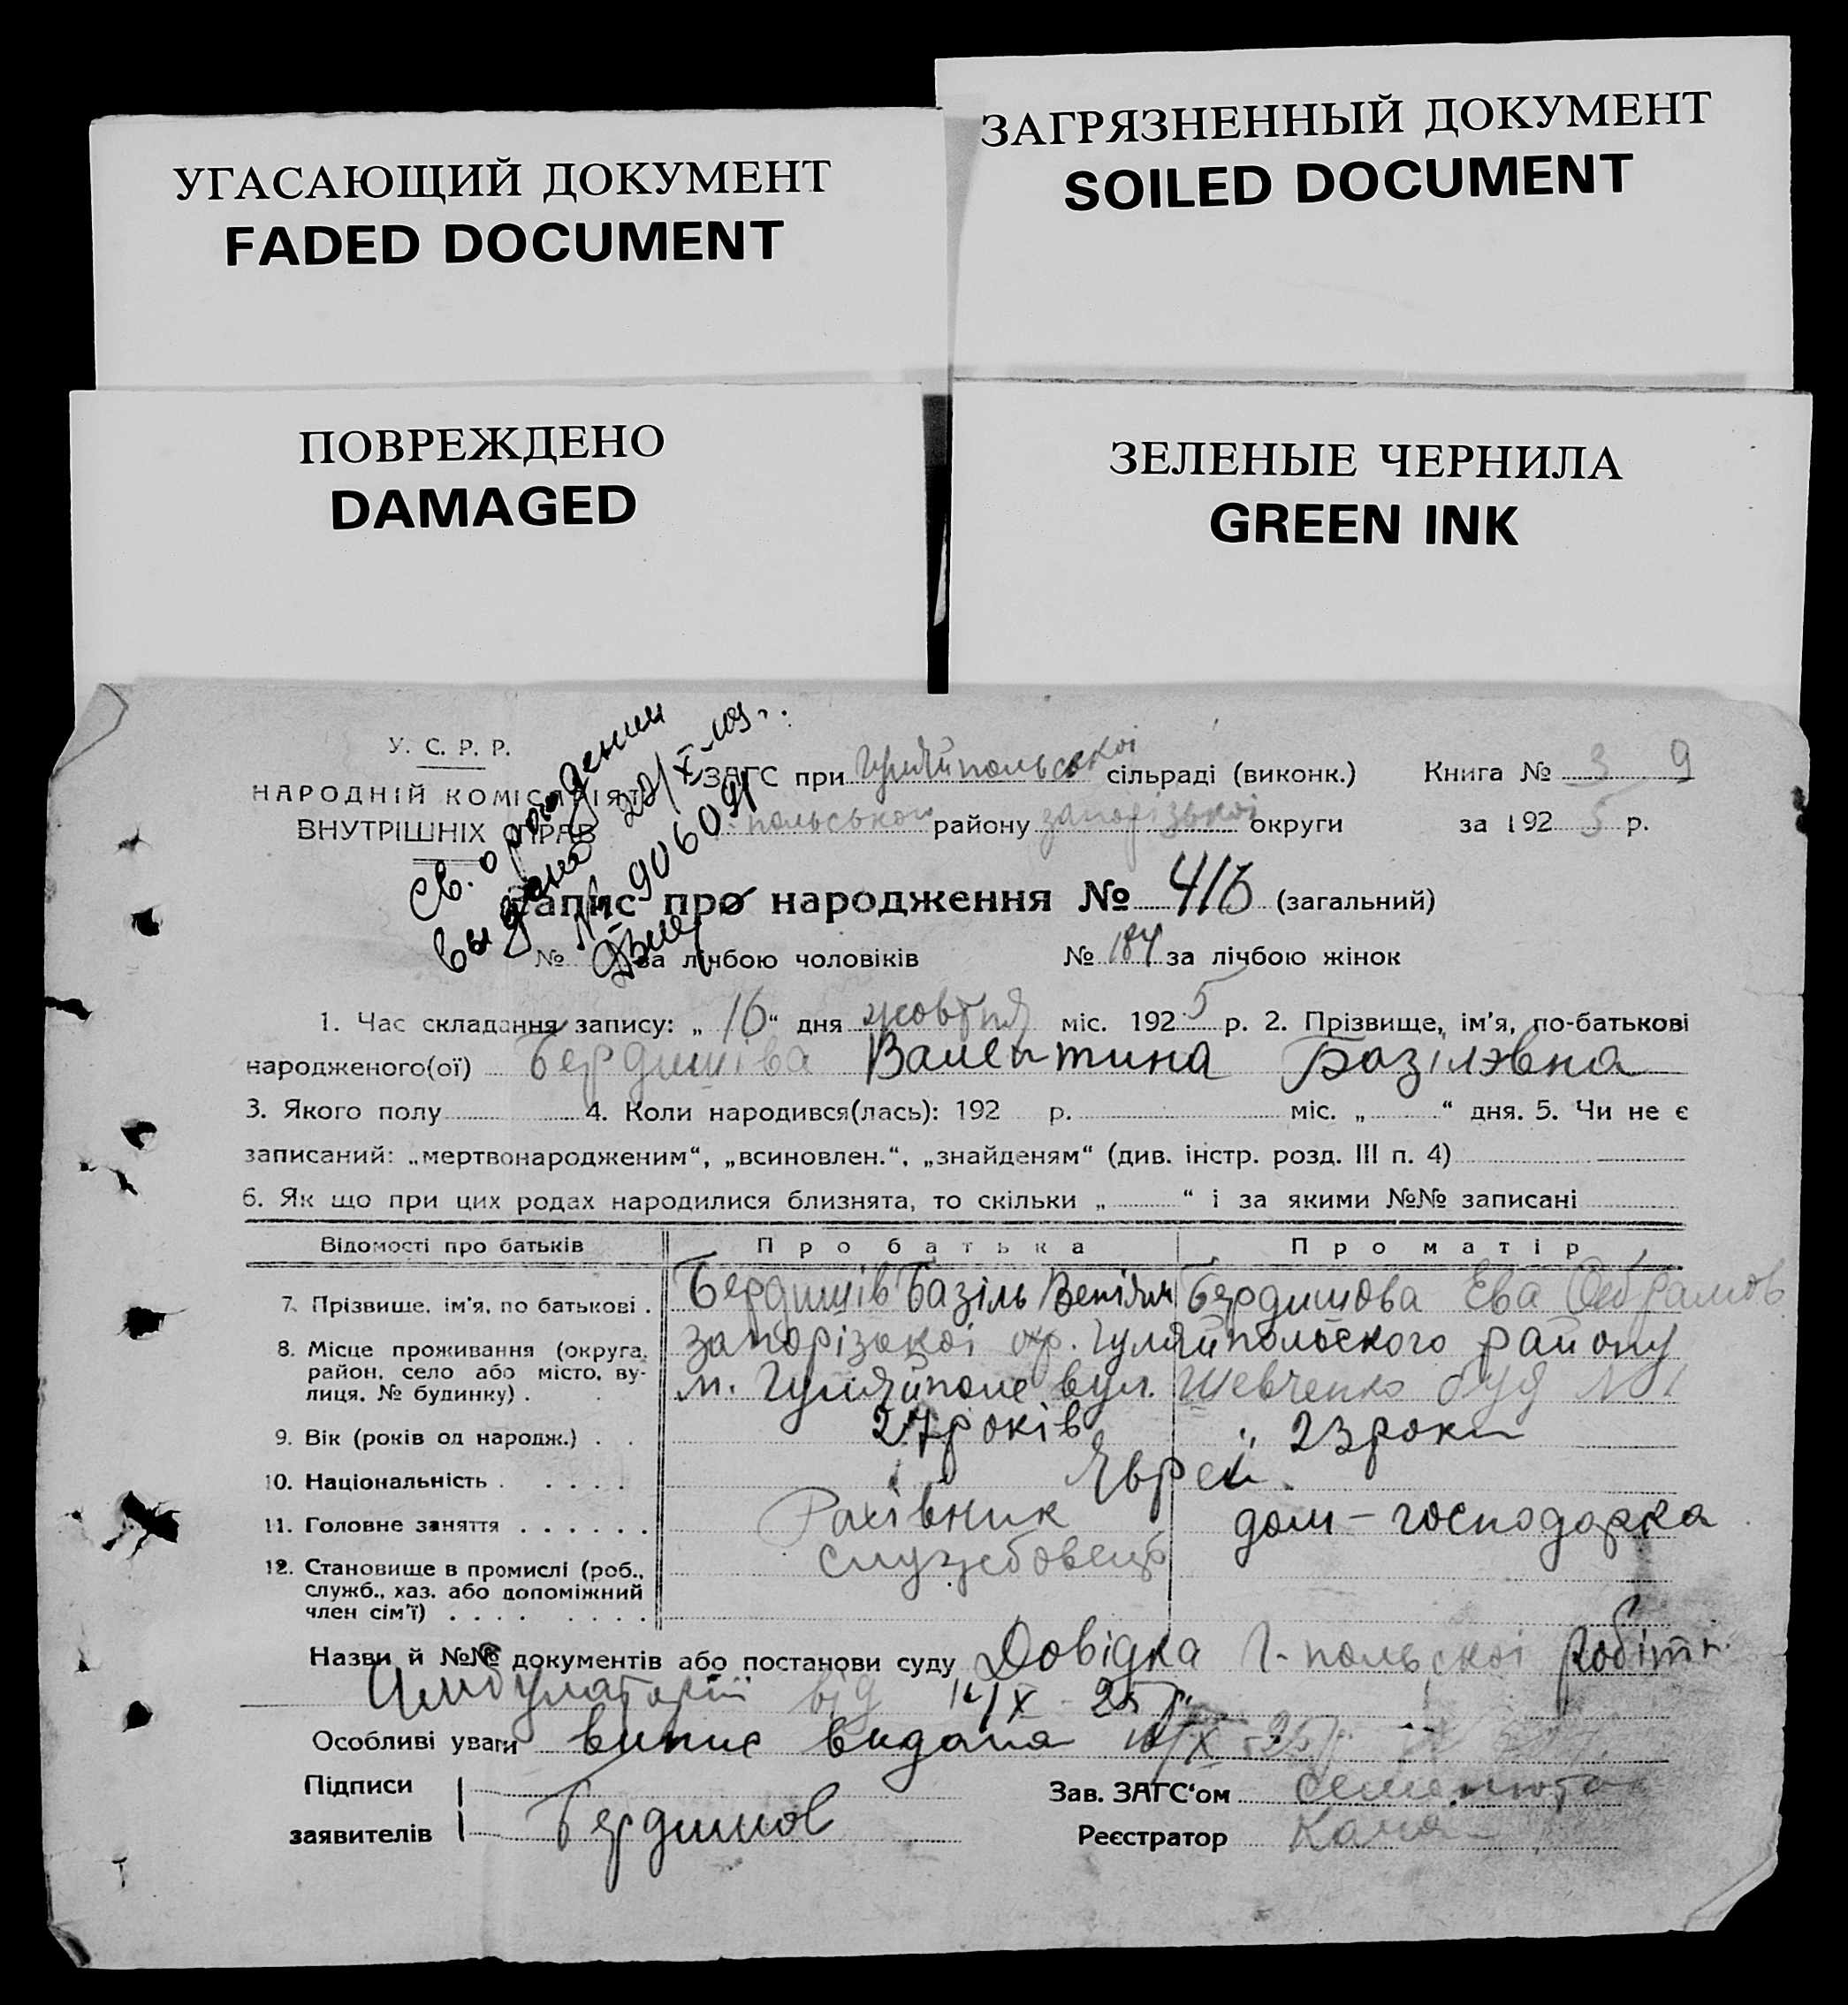 УГАСАЮЩИЙ ДОКУМЕНТ
FADED DOCUMENT
ЗАГРЯЗНЕННЫЙ ДОКУМЕНТ
SOILED DOCUMENT
ПОВРЕЖДЕНО
DAMAGED
ЗЕЛЕНЫЕ ЧЕРНИЛА
GREEN INK
У. С. Р. Р.
НАРОДНІЙ КОМІСАРІЯТ
ВНУТРІШНІХ СПРАВ
Св. о рождении
выдано 22/X-
№ 906091
ЗАГС при Гуляйпольської сільраді (виконк.) Книга № 3 9
польського району запорізької округи за 1925 р.
Запис про народження № 416 (загальний)
№ за лічбою чоловіків № 184 за лічбою жінок
1. Час складання запису: „16“ дня жовтня міс. 1925 р. 2. Прізвище, ім'я, по-батькові
народженого(ої) Бердишіва Валентина Базілэвна
3. Якого полу 4. Коли народився(лась): 192 р. міс. „ “ дня. 5. Чи не є
записаний: „мертвонародженим“, „всиновлен.“, „знайденям“ (див. інстр. розд. III п. 4)
6. Як що при цих родах народилися близнята, то скільки „ “ і за якими №№ записані
Відомості про батьків Про батька Про матір
7. Прізвище, ім'я, по батькові . Бердишів Базіль Веніям Бердишова Ева Абрамов
8. Місце проживання (округа, район, село або місто, вулиця, № будинку) . Запорізької окр. Гуляйпольского району
м. Гуляйполе вул. Шевченко буд №1
9. Вік (років од народж.) . . 27 років " 23 роки
10. Національність . . . . . Яврей
11. Головне заняття . . . . . . Рахівник дом-господарка
12. Становище в промислі (роб., служб., хаз. або допоміжний член сім'ї) . . . . . . . . службовець
Назви й №№ документів або постанови суду Довідка Г-польскої робітн.
Амбулаторії від 14/X 25 р.
Особливі уваги випис видана 16/X-25 р.
Підписи
заявителів Бердишов
Зав. ЗАГС'ом Семенюта
Реєстратор